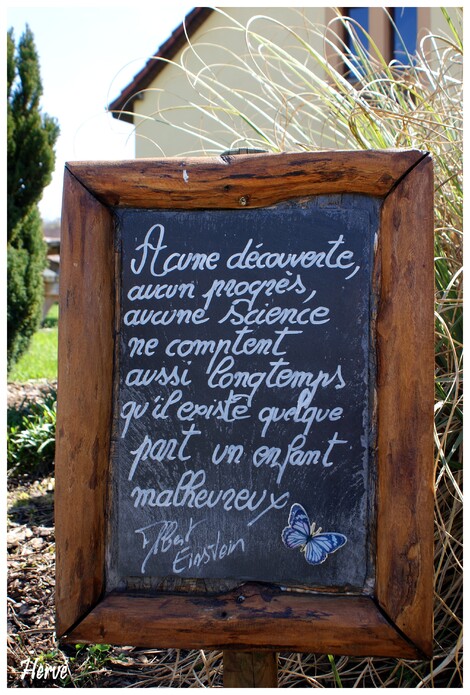 Acune découverte,
aucun progrès,
aucune science
ne comptent
aussi longtemps
qu'il existe quelque
part un enfant
malheureux
Albert
Einstein
Hervé